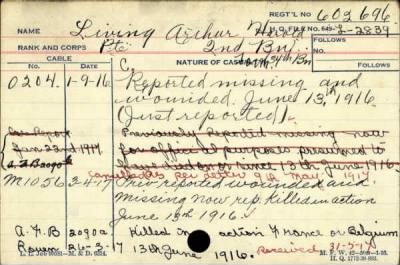 REGT'L NO 602696
NAME Living Arthur Harold H.Q. FILE 649-L-2839
RANK AND CORPS Pte 2nd Bn FOLLOWS
CABLE NATURE OF CASUALTY FOLLOWS
NO. DATE
0204. 1-9-16 Reported missing and
wounded. June 13th, 1916.
(Just reported).
Cas Report Previously reported missing now
Jan 22nd 1917 for official purposes presumed to
A. F. B2090a have died on or since 13th June 1916.
Cancelled as per letter 9th May 1917
M1056 3-4-17 Prev. reported wounded and
missing now rep. killed in action
June 13th 1916.
A.F.B 2090a Killed in action France or Belgium
Rouen 26-3-17 13th June 1916. Received 31-5-17